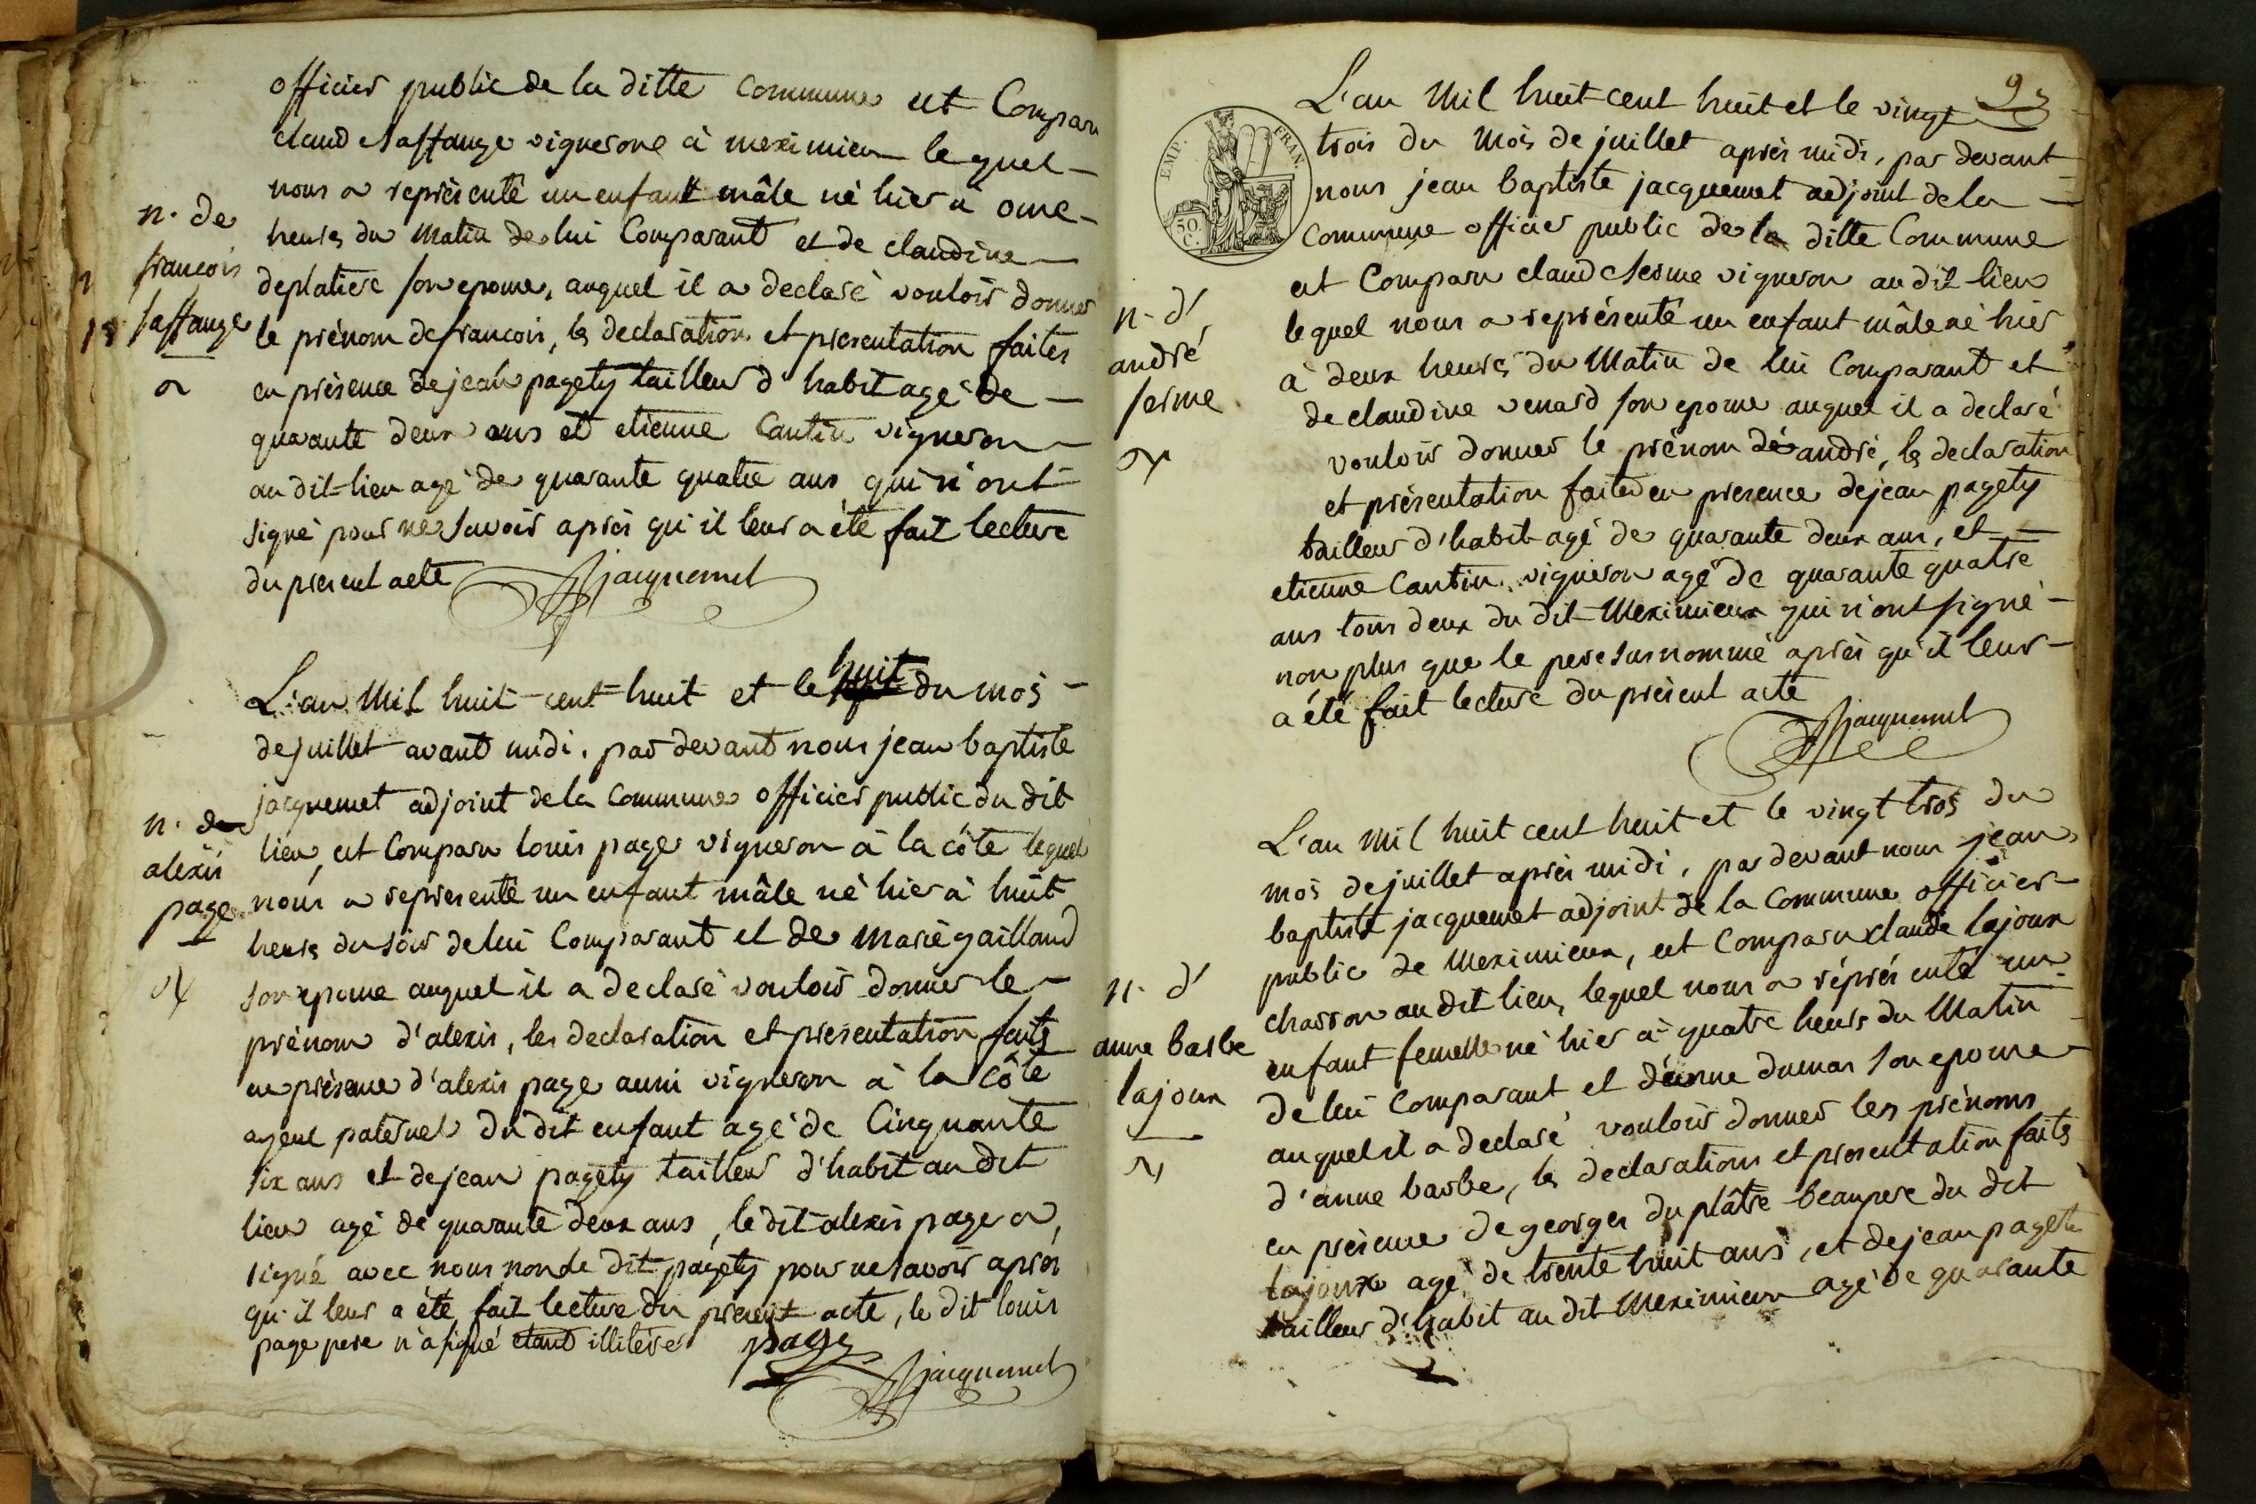 officier public de la ditte Commune est Comparu
claud saffange vignerone à meximieu lequel
nous a représenté un enfant mâle né hier à onze
heures du Matin de lui Comparant et de claudine
deplatiere son epouse, auquel il a declaré vouloir donner
le prénom de francois, les declaration et presentation faites
en présence de jean pagety tailleur d'habit agé de
quarante deux ans et etienne Cantin vigneron
au dit lieu agé de quarante quatre ans qui n'ont
signé pour ne savoir après qu'il leur a été fait lecture
du present acte Jacquemet
n. de
francois
saffange
L'an Mil huit cent huit et le huit du mois
de juillet avant midi, par devant nous jean baptiste
jacquemet adjoint de la Commune officier public du dit
lieu, est Comparu louis page vigneron à la côte lequel
nous a representé un enfant mâle né hier à huit
heures du soir de lui Comparant et de marie gailland
son epouse auquel il a declaré vouloir donner le
prénom d'alexis, les declaration et presentation faites
en présence d'alexis page aussi vigneron à la côte
ayeul paternel du dit enfant agé de Cinquante
six ans et de jean pagety tailleur d'habit au dit
lieu agé de quarante deux ans, le dit alexis page a
signé avec nous non le dit pagety pour ne savoir après
qu'il leur a été fait lecture du present acte, le dit louis
page pere n'a signé etant illitére page
Jacquemet
n. de
alexis
page
93
EMP. FRAN.
50 C.
L'an Mil huit cent huit et le vingt
trois du Mois de juillet après midi, par devant
nous jean baptiste jacquemet adjoint de la
Commune officier public de la ditte Commune
est Comparu claud sesme vigneron au dit lieu
lequel nous a représenté un enfant mâle né hier
à deux heures du Matin de lui Comparant et
de claudine venard son epouse auquel il a declaré
vouloir donner le prénom dé andré, les declaration
et présentation faites en presence de jean pagety
tailleur d'habit agé de quarante deux ans, et
etienne Cantin vigneron agé de quarante quatre
ans tous deux du dit Meximieux qui n'ont signé
non plus que le pere surnommé après qu'il leur
a été fait lecture du présent acte
Jacquemet
n. d'
andré
sesme
L'an Mil huit cent huit et le vingt trois du
mois de juillet après midi, par devant nous jean
baptiste jacquemet adjoint de la Commune officier
public de Meximieux, est Comparu claude lajoux
charron au dit lieu, lequel nous a réprésenté un
enfant femelle né hier à quatre heures du Matin
de lui Comparant et d'anne dumas son epouse
auquel il a declaré vouloir donner les prénoms
d'anne barbe, les declarations et presentation faites
en présence de georges duplâtre beaupere du dit
lajoux agé de trente huit ans, et de jean pagety
tailleur d'habit au dit Meximieux agé de quarante
n. d'
anne barbe
lajoux